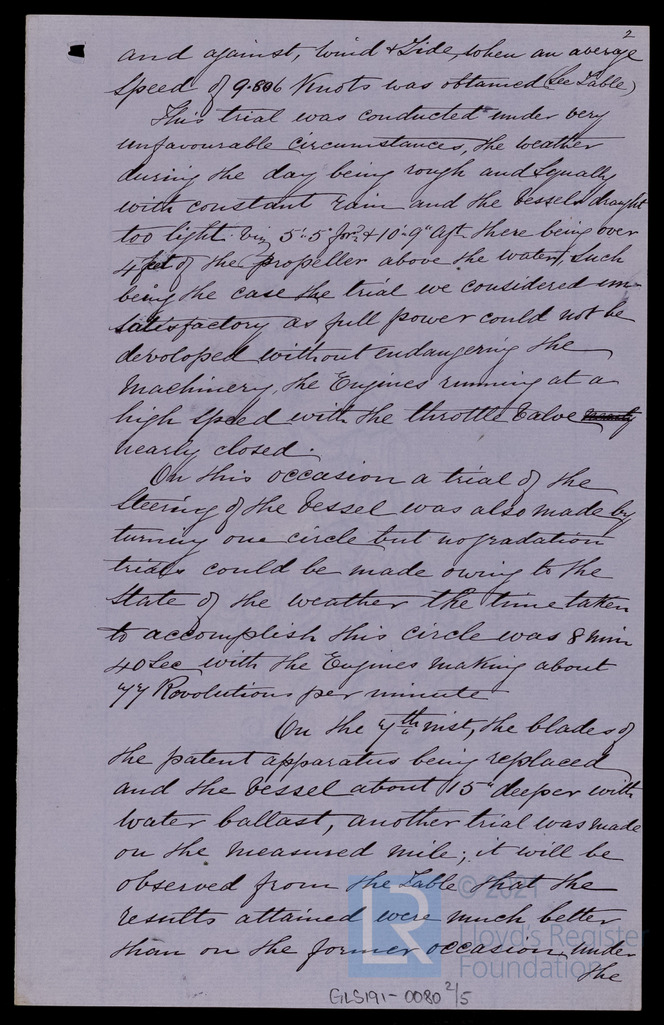 2
and against, wind & Tide, when an average
speed of 9.806 Knots was obtained (See Table)
This trial was conducted under very
unfavourable circumstances, the weather
during the day being rough and squally
with constant rain and the Vessels draught
too light. viz 5'.5" for'd & 10'.9" aft. there being over
4 feet of the propeller above the water, such
being the case the trial we considered un-
satisfactory as full power could not be
developed without endangering the
Machinery, the Engines running at a
high speed with the throttle Valve nearly
nearly closed.
On this occasion a trial of the
Steering of the Vessel was also made by
turning one circle but no gradation
trials could be made owing to the
State of the weather the time taken
to accomplish this circle was 8 min
40 Sec with the Engines making about
77 Revolutions per minute
On the 7th inst, the blades of
the patent apparatus being replaced
and the Vessel about 15" deeper with
water ballast, another trial was made
on the measured mile; it will be
observed from the Table that the
results attained were much better
than on the former occasion, under
the
© 2021
LR
Lloyd's Register
Foundation
GLS191-0080 2/5